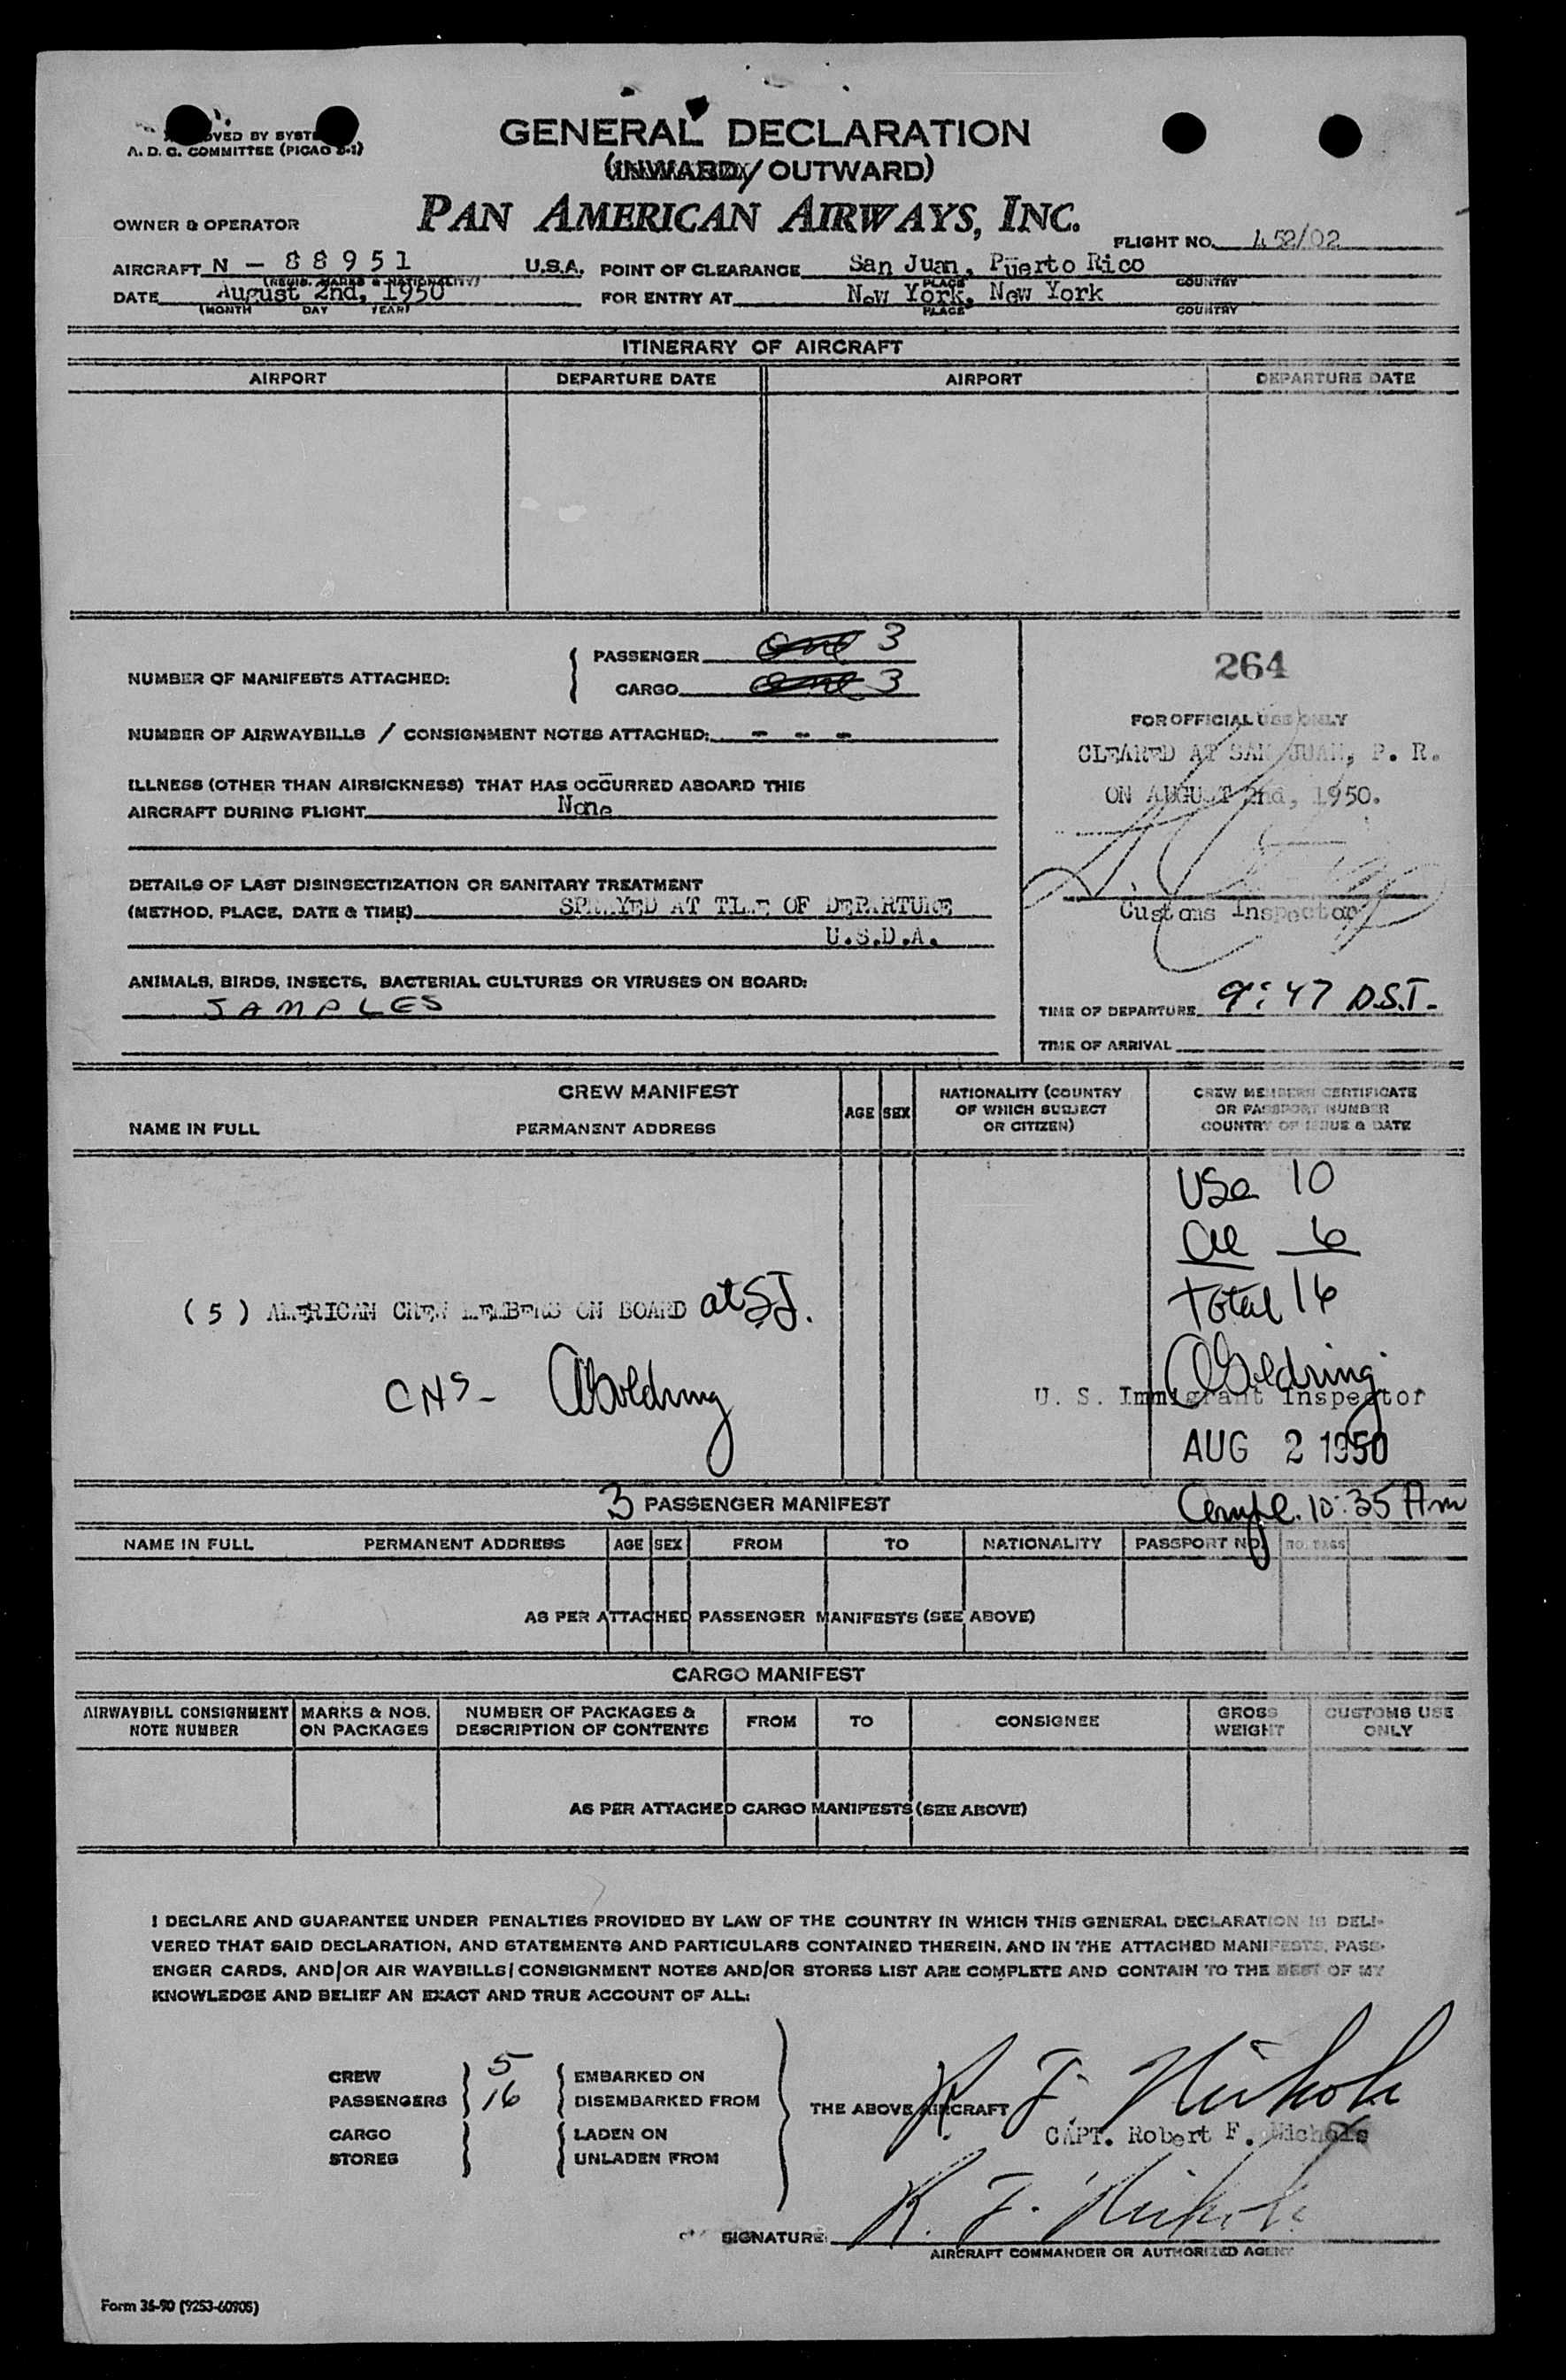 GENERAL DECLARATION
A. D. C. COMMITTEE (PICAO
(INWARD/OUTWARD)
PAN AMERICAN AIRWAYS, INC.
OWNER & OPERATOR
FLIGHT NO. 452/02
AIRCRAFT N - 88951 U.S.A. POINT OF CLEARANCE San Juan, Puerto Rico
(REGIS. MARKS & NATIONALITY) PLACE COUNTRY
DATE August 2nd, 1950 FOR ENTRY AT New York, New York
(MONTH DAY YEAR) PLACE COUNTRY
ITINERARY OF AIRCRAFT
AIRPORT DEPARTURE DATE AIRPORT DEPARTURE DATE
NUMBER OF MANIFESTS ATTACHED:
PASSENGER One 3
CARGO One 3
264
NUMBER OF AIRWAYBILLS / CONSIGNMENT NOTES ATTACHED: - - -
FOR OFFICIAL USE ONLY
CLEARED AT SAN JUAN, P. R.
ON AUGUST 2nd, 1950.
ILLNESS (OTHER THAN AIRSICKNESS) THAT HAS OCCURRED ABOARD THIS
AIRCRAFT DURING FLIGHT None
DETAILS OF LAST DISINSECTIZATION OR SANITARY TREATMENT
(METHOD, PLACE, DATE & TIME) SPRAYED AT TIME OF DEPARTURE
U.S.D.A.
Customs Inspector
ANIMALS, BIRDS, INSECTS, BACTERIAL CULTURES OR VIRUSES ON BOARD:
SAMPLES
TIME OF DEPARTURE 9:47 D.S.T.
TIME OF ARRIVAL
CREW MANIFEST
NAME IN FULL PERMANENT ADDRESS
AGE SEX
NATIONALITY (COUNTRY
OF WHICH SUBJECT
OR CITIZEN)
CREW MEMBERS CERTIFICATE
OR PASSPORT NUMBER
COUNTRY OF ISSUE & DATE
USa 10
al 6
Total 16
(5) AMERICAN CREW MEMBERS ON BOARD at SJ.
CNS- AGoldring
AGoldring
U. S. Immigrant Inspector
AUG 2 1950
3 PASSENGER MANIFEST
Comple. 10:35 Am
NAME IN FULL PERMANENT ADDRESS AGE SEX FROM TO NATIONALITY PASSPORT NO. NO. BAGS
AS PER ATTACHED PASSENGER MANIFESTS (SEE ABOVE)
CARGO MANIFEST
AIRWAYBILL CONSIGNMENT
NOTE NUMBER
MARKS & NOS.
ON PACKAGES
NUMBER OF PACKAGES &
DESCRIPTION OF CONTENTS
FROM TO CONSIGNEE
GROSS
WEIGHT
CUSTOMS USE
ONLY
AS PER ATTACHED CARGO MANIFESTS (SEE ABOVE)
I DECLARE AND GUARANTEE UNDER PENALTIES PROVIDED BY LAW OF THE COUNTRY IN WHICH THIS GENERAL DECLARATION IS DELI-
VERED THAT SAID DECLARATION, AND STATEMENTS AND PARTICULARS CONTAINED THEREIN, AND IN THE ATTACHED MANIFESTS, PASS-
ENGER CARDS, AND/OR AIR WAYBILLS/CONSIGNMENT NOTES AND/OR STORES LIST ARE COMPLETE AND CONTAIN TO THE BEST OF MY
KNOWLEDGE AND BELIEF AN EXACT AND TRUE ACCOUNT OF ALL:
CREW 5 EMBARKED ON
PASSENGERS 16 DISEMBARKED FROM
CARGO LADEN ON
STORES UNLADEN FROM
THE ABOVE AIRCRAFT
R. F. Nichols
CAPT. Robert F. Nichols
SIGNATURE: R. F. Nichols
AIRCRAFT COMMANDER OR AUTHORIZED AGENT
Form 36-90 (9253-60905)